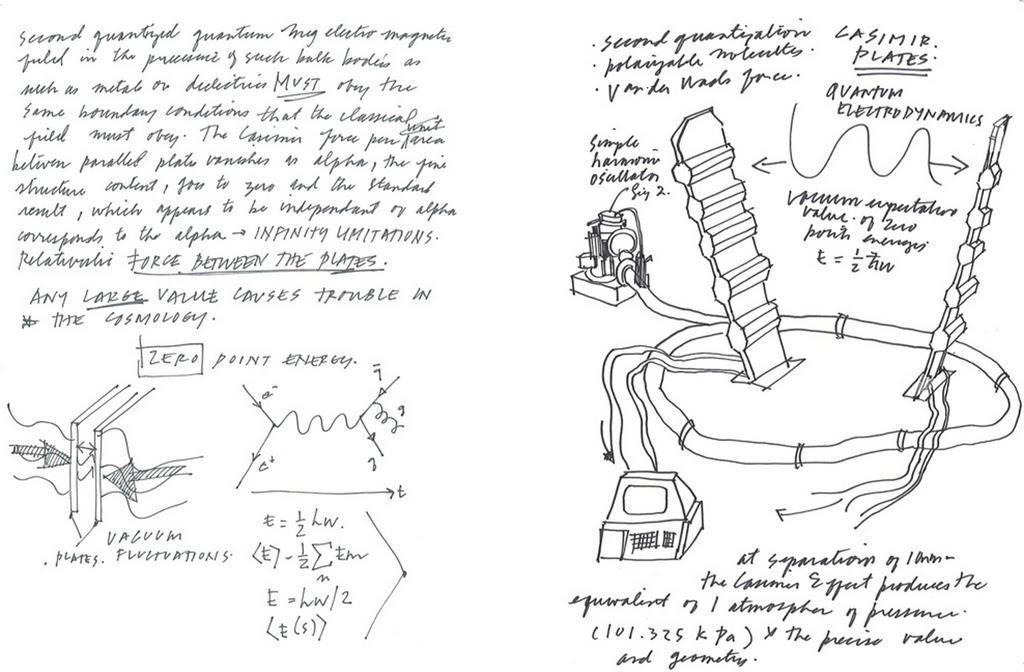 second quantized quantum electro magnetic
field in the presence of such bulk bodies as
such as metal or dielectrics MUST obey the
same boundary conditions that the classical
field must obey. The Casimir force per unit area
between parallel plate vanishes as alpha, the fine
structure content, goes to zero and the standard
result, which appears to be independant of alpha
corresponds to the alpha → INFINITY LIMITATIONS.
Relativistic FORCE BETWEEN THE PLATES.
ANY LARGE VALUE CAUSES TROUBLE IN
* THE COSMOLOGY.
ZERO POINT ENERGY.
e-
e+
q̄
g
q
t
VACUUM
. PLATES. FLUCTUATIONS.
E = 1/2 ħw.
⟨E⟩ - 1/2 Σ En
n
E = ħw/2
⟨E(s)⟩
. second quantization
. polarizable molecules.
. Van der Waals force.
CASIMIR.
PLATES.
QUANTUM
ELECTRODYNAMICS
Simple
harmonic
oscillator
fig 2.
vacuum expectation
value of zero
point energies
E = 1/2 ħw
at separations of 10nm-
the Casimir Effect produces the
equivalent of 1 atmospher of pressure.
(101.325 kPa) * the precise value
and geometry.